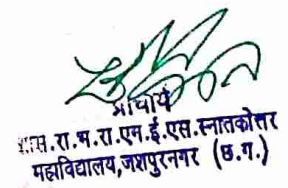 प्राचार्य
शास.रा.भ.रा.एम.ई.एस.स्नातकोत्तर
महाविद्यालय,जशपुरनगर (छ.ग.)